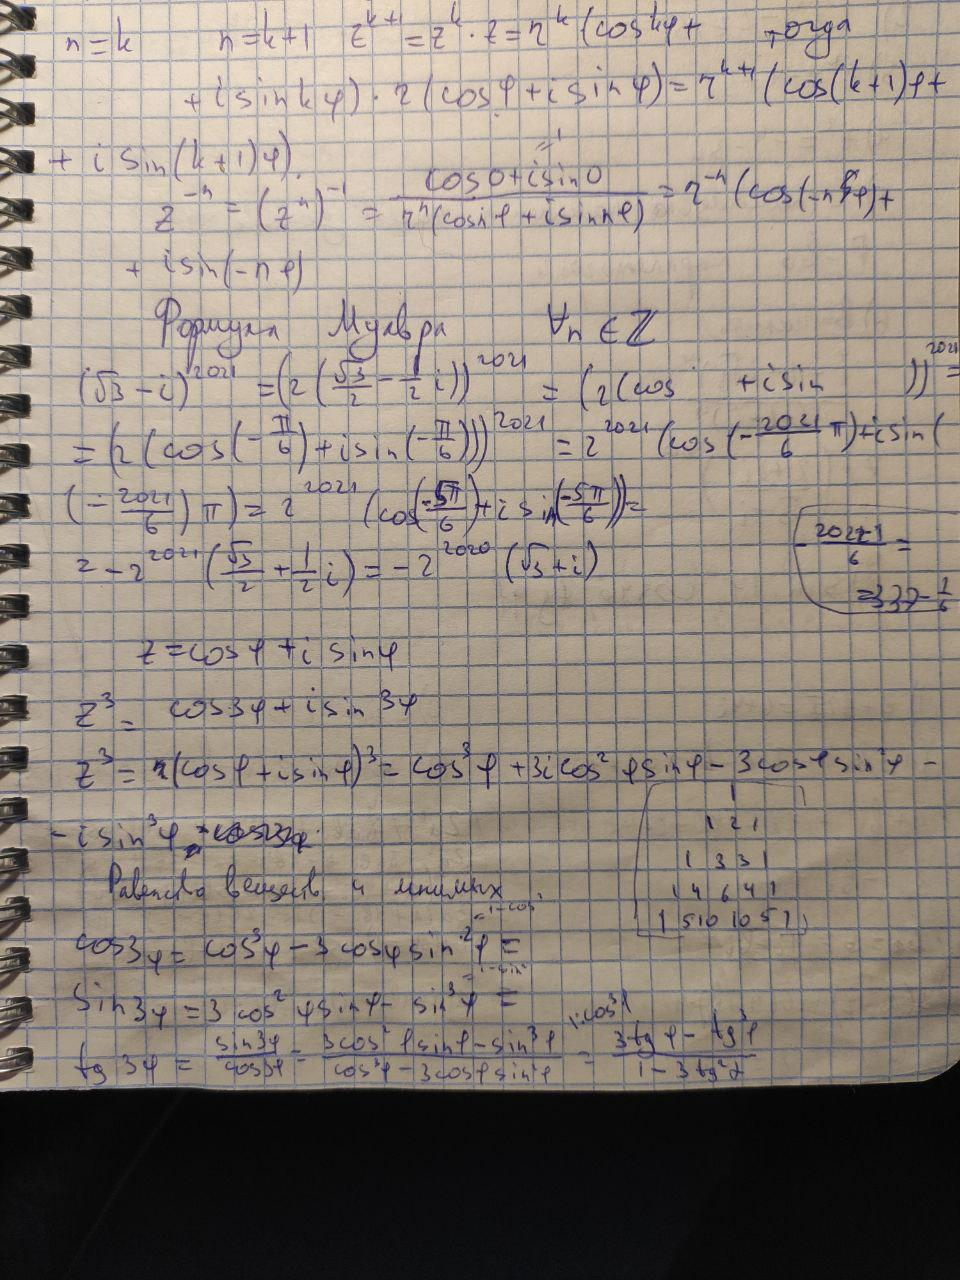 n=k n=k+1 z^{k+1} = z^k · z = r^k (cos kφ + тогда
+ i sin kφ) · r (cos φ + i sin φ) = r^{k+1} (cos(k+1)φ +
+ i sin(k+1)φ).
z^{-n} = (z^n)^{-1} = \frac{cos 0 + i sin 0}{r^n (cos nφ + i sin nφ)} = r^{-n} (cos(-nφ) +
=1
+ i sin(-nφ)
Формула Муавра ∀n ∈ ℤ
(√3 - i)^{2021} = (2 (\frac{√3}{2} - \frac{1}{2} i))^{2021} = (2(cos + i sin ))^{2021} =
= (2 (cos(-\frac{π}{6}) + i sin(-\frac{π}{6})))^{2021} = 2^{2021} (cos(-\frac{2021}{6} π) + i sin(
(-\frac{2021}{6}) π) = 2^{2021} (cos(\frac{-5π}{6}) + i sin(\frac{-5π}{6})) =
= -2^{2021} (\frac{√3}{2} + \frac{1}{2} i) = -2^{2020} (√3 + i)
=337-\frac{1}{6}
z = cos φ + i sin φ
z^3 = cos 3φ + i sin 3φ
z^3 = (cos φ + i sin φ)^3 = cos^3 φ + 3i cos^2 φ sin φ - 3 cos φ sin^2 φ -
- i sin^3 φ
1
1 2 1
1 3 3 1
1 4 6 4 1
1 5 10 10 5 1
Равенство веществ и мнимых
cos 3φ = cos^3 φ - 3 cos φ sin^2 φ =
=1-cos^2
sin 3φ = 3 cos^2 φ sin φ - sin^3 φ =
=1-sin^2
tg 3φ = \frac{sin 3φ}{cos 3φ} = \frac{3 cos^2 φ sin φ - sin^3 φ}{cos^3 φ - 3 cos φ sin^2 φ} = \frac{3 tg φ - tg^3 φ}{1 - 3 tg^2 φ}
: cos^3 φ